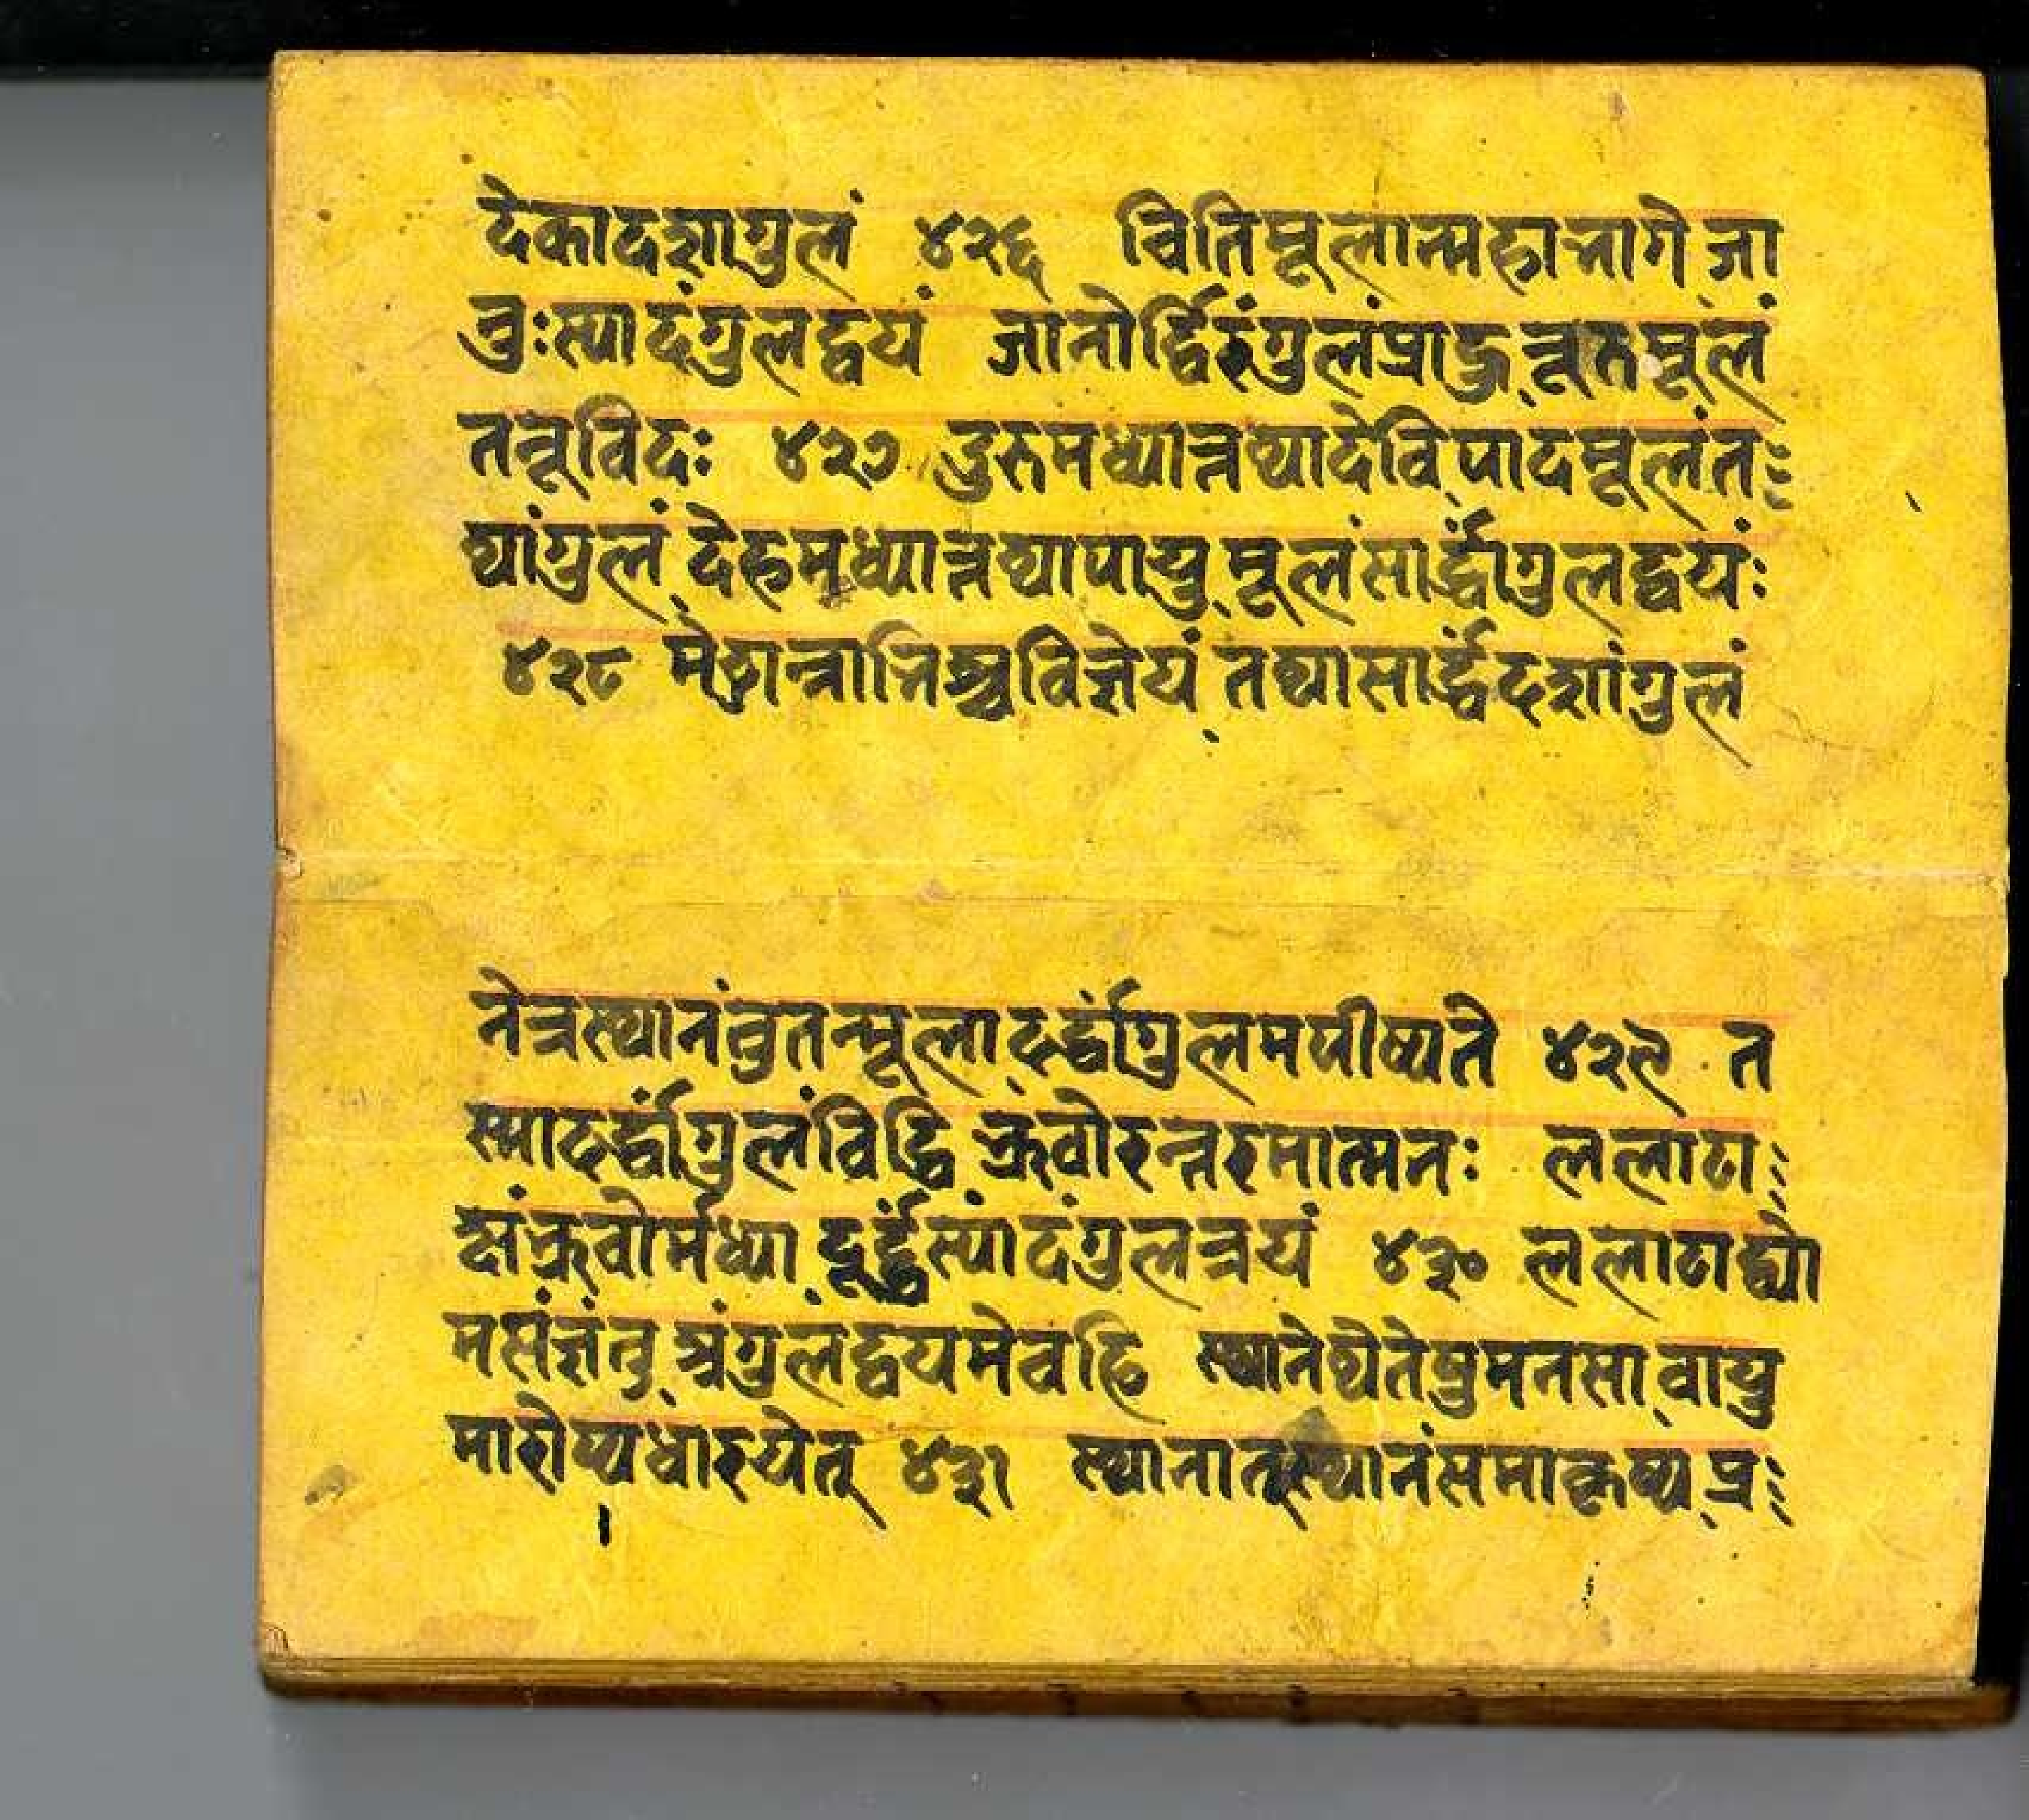 देकादशागुलं ४२६ चितिमूलान्महाभागे जा
नुःस्यादंगुलद्वयं जानोर्द्विरंगुलंप्राहुरूतमूलं
तत्रूविदः ४२७ दुरुमध्यात्तथादेविपादमूलंत
थ्यांगुलं देहमध्यात्तथापायुमूलंसार्द्धांगुलद्वयः
४२८ मेढ्रान्नाभिश्चविज्ञेयं तथासार्द्धदशांगुलं
नेत्रस्थानंतुतन्मूलादर्द्धांगुलमपीष्यते ४२९ त
स्मादर्द्धांगुलंविद्धि भ्रूवोरन्तरमात्मनः ललाटा
क्षंभ्रूवोर्मध्यादूर्द्ध्वंस्यादंगुलत्रयं ४३० ललाटाद्व्यो
मसंज्ञंतु त्र्यंगुलंद्वयमेवहि स्थानेष्वेतेषुमनसावायु
मारोप्यधारयेत् ४३१ स्थानात्स्थानंसमाकृष्य प्र